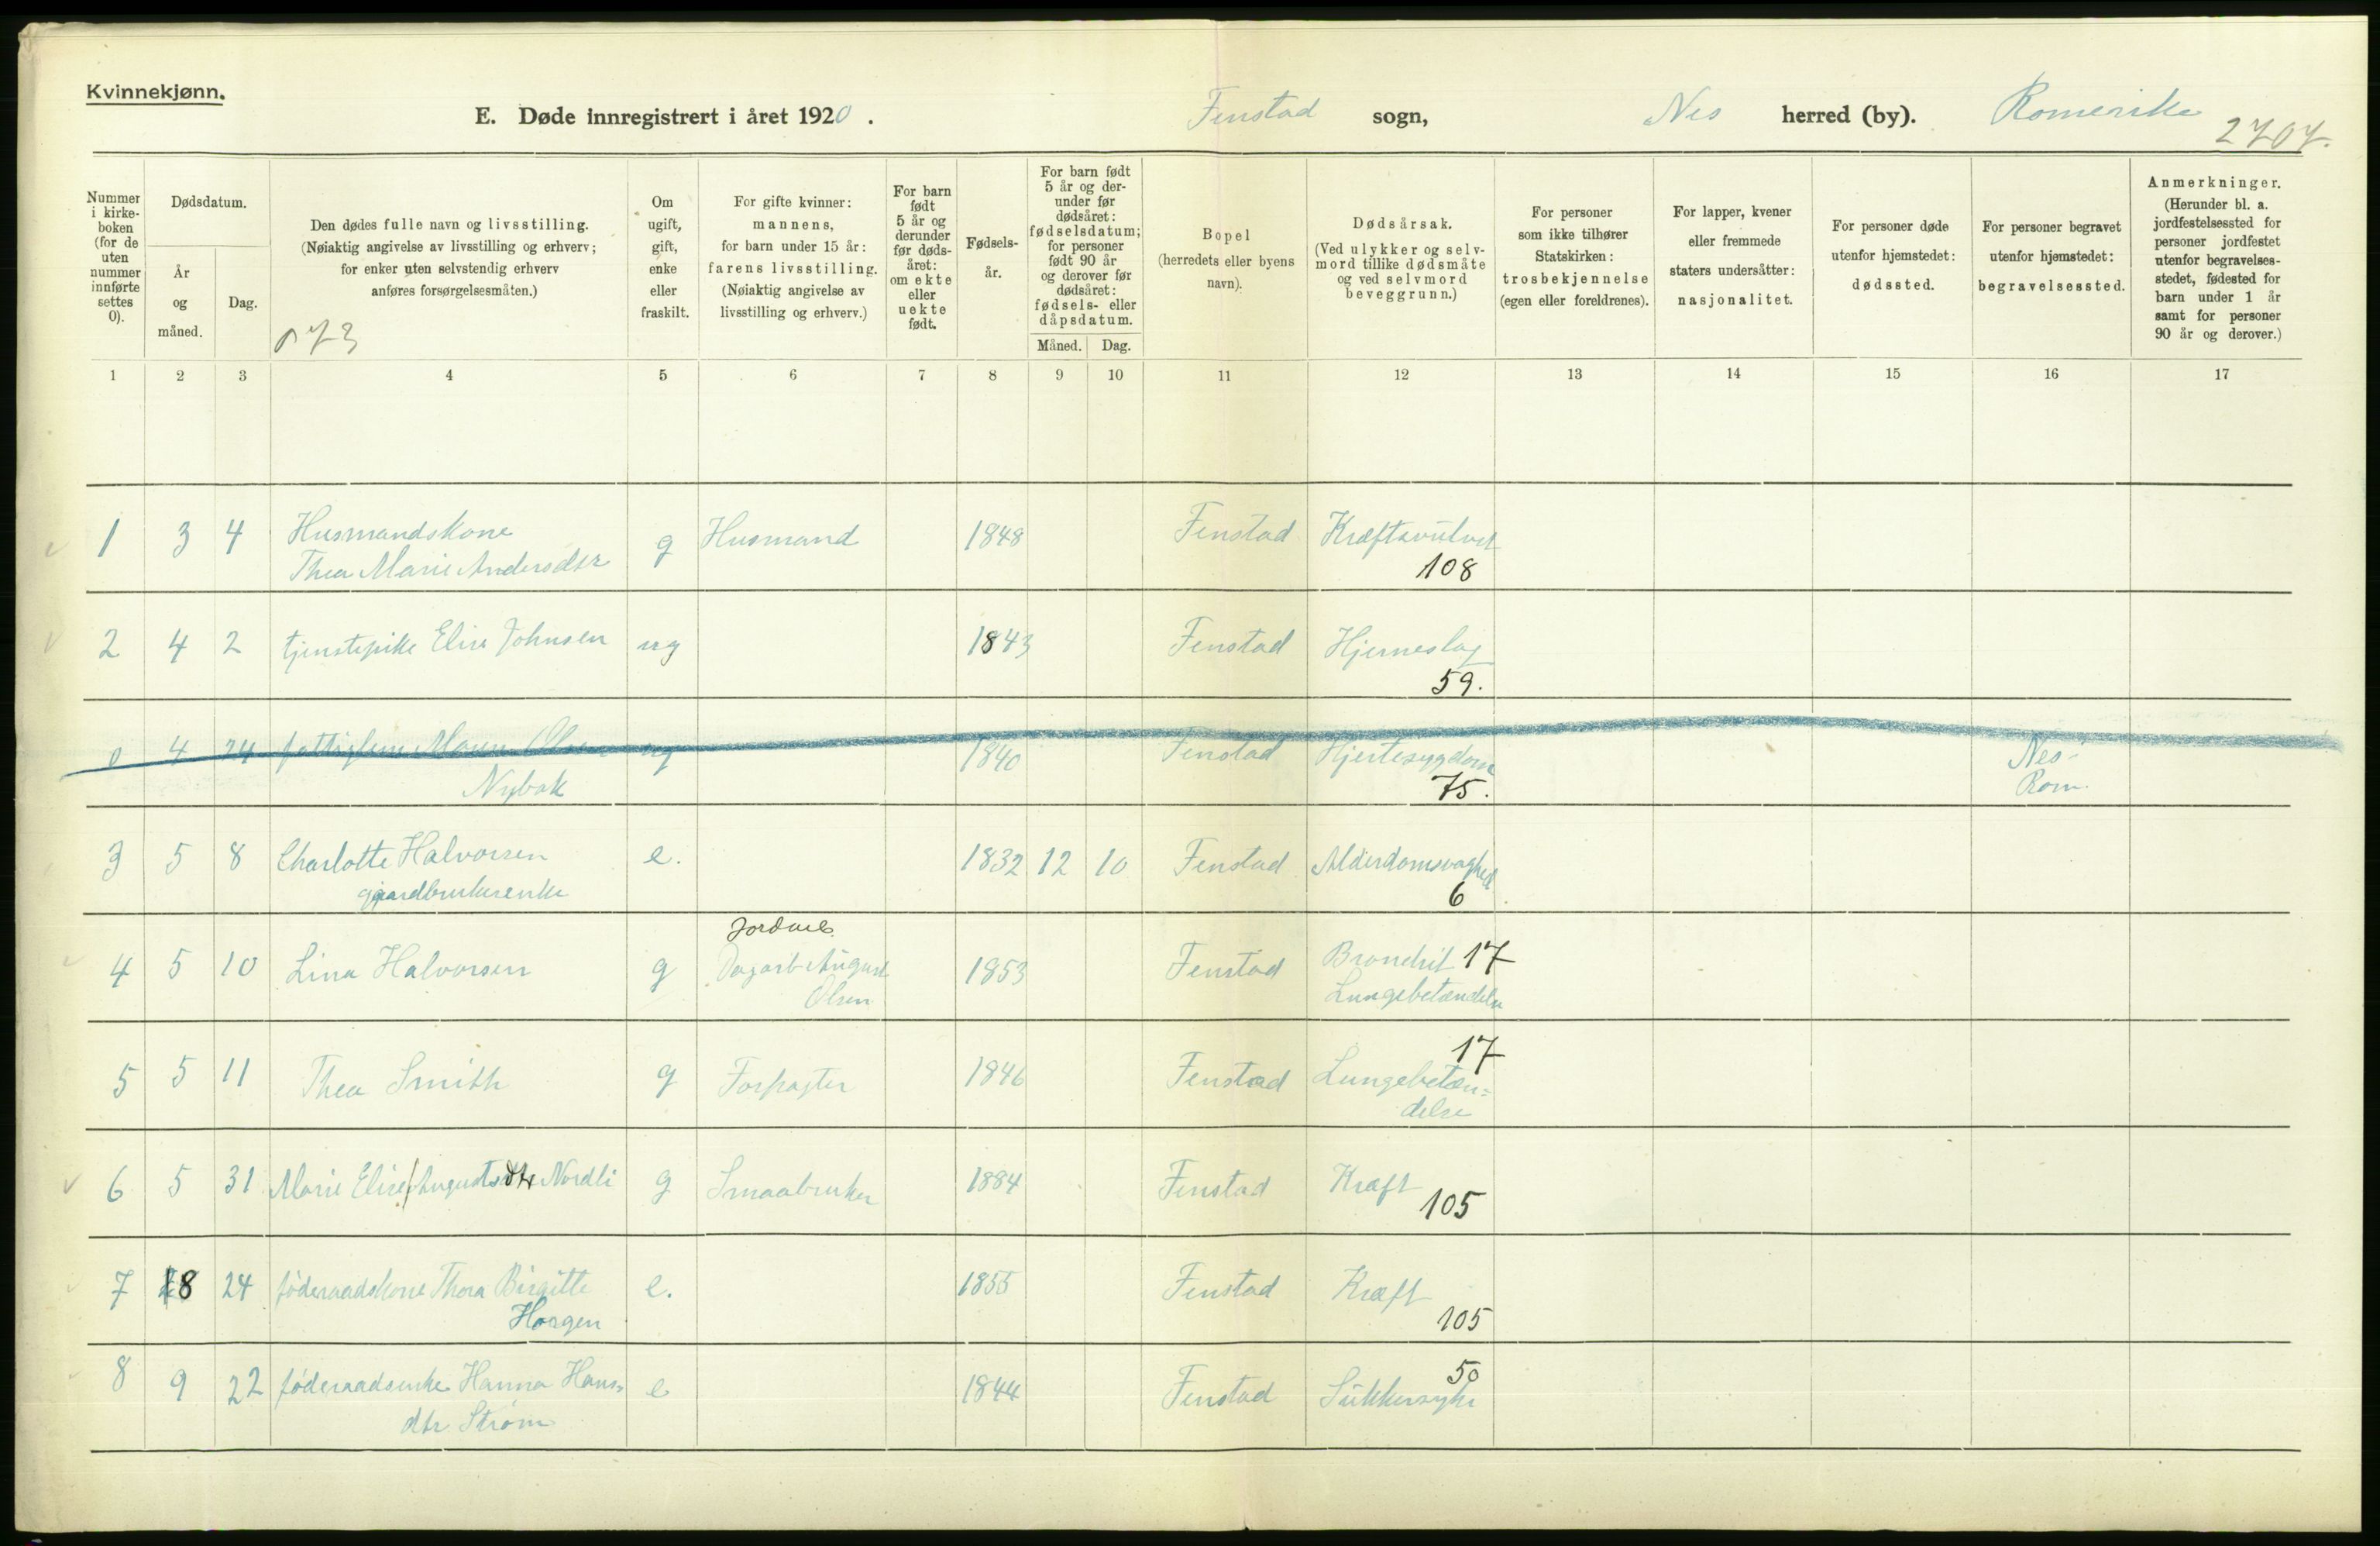 Kvinnekjønn.
E. Døde innregistrert i året 1920. Fenstad sogn, Nes herred (by). Romerike
2707.
Nummer i kirke-boken (for de uten nummer innførte settes 0).
Dødsdatum.
År og måned.
Dag.
Den dødes fulle navn og livsstilling.
(Nøiaktig angivelse av livsstilling og erhverv;
for enker uten selvstendig erhverv
anføres forsørgelsesmåten.)
Om ugift, gift, enke eller fraskilt.
For gifte kvinner:
mannens,
for barn under 15 år:
farens livsstilling.
(Nøiaktig angivelse av
livsstilling og erhverv.)
For barn født 5 år og derunder før døds-året: om ekte eller uekte født.
Fødsels-år.
For barn født 5 år og der-under før dødsåret: fødselsdatum; for personer født 90 år og derover før dødsåret: fødsels- eller dåpsdatum.
Måned. Dag.
Bopel
(herredets eller byens
navn).
Dødsårsak.
(Ved ulykker og selv-
mord tillike dødsmåte
og ved selvmord
beveggrunn.)
For personer
som ikke tilhører
Statskirken:
trosbekjennelse
(egen eller foreldrenes).
For lapper, kvener
eller fremmede
staters undersåtter:
nasjonalitet.
For personer døde
utenfor hjemstedet:
dødssted.
For personer begravet
utenfor hjemstedet:
begravelsessted.
Anmerkninger.
(Herunder bl. a.
jordfestelsessted for
personer jordfestet
utenfor begravelses-
stedet, fødested for
barn under 1 år
samt for personer
90 år og derover.)
1 2 3 4 5 6 7 8 9 10 11 12 13 14 15 16 17
1 3 4 Husmandskone g Husmand 1848 Fenstad
Thea Marie Andersdtr 108
2 4 2 tjenstepike Elise Johnsen ug 1843 Fenstad Hjerneslag
59.
0 4 24 ug 1840 Fenstad Hjertesygdom Nes
Nybak 75. Rom.
3 5 8 Charlotte Halvorsen e. 1832 12 10 Fenstad Alderdomsvaghed
gaardbrukerenke 6
4 5 10 Lina Halvorsen g Dagarb August 1853 Fenstad Bronchit 17
Olsen Lungebetændelse
17
5 5 11 Thea Smith g Forpagter 1846 Fenstad Lungebetæn=
delse
6 5 31 Marie Elise Augustsdtr Nordli g Smaabruker 1884 Fenstad Kræft
105
7 8 24 føderaadskone Thora Birgitte e. 1855 Fenstad Kræft
Horgen 105
50
8 9 22 føderaadsenke Hanna Hans- e 1844 Fenstad Sukkersyke
dtr Strøm